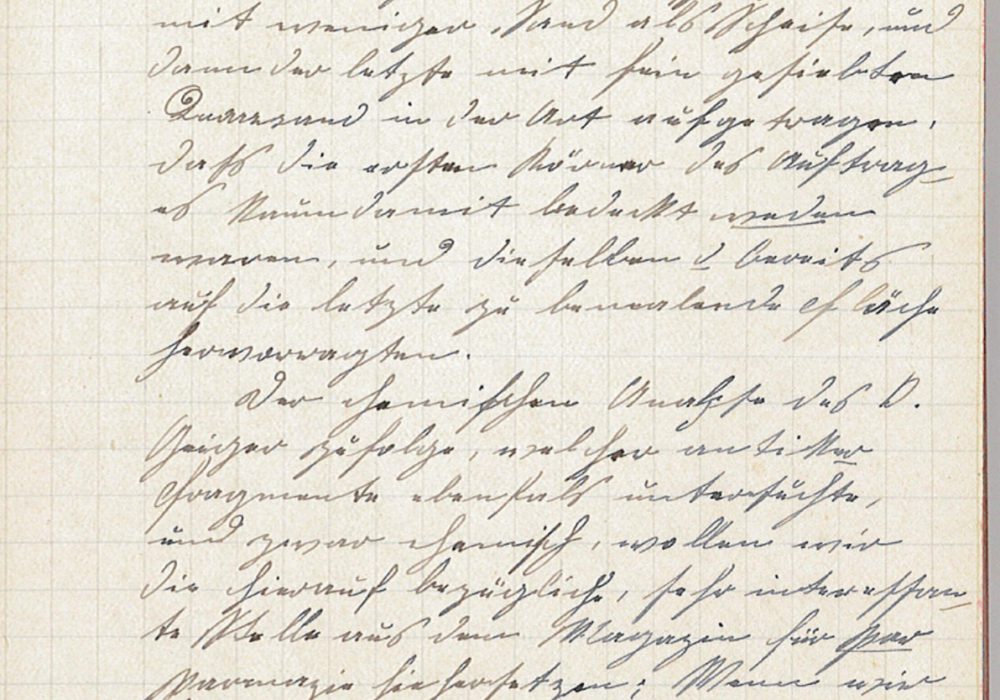 mit weniger Sand als Scheife, und
dann der letzte mit fein gesiebten
Quarzsand in der Art aufgetragen,
daß die ersten Körner des Auftrag-
es kaum damit bedeckt weden
waren, und dieselben d bereits
auf die letzte zu bemalende Fläche
hervorragten.
Der chemischen Analyse des D.
Geiger zufolge, welcher antiker
Fragmente ebenfals untersuchte,
und zwar chemisch, wollen wir
die hierauf bezügliche, sehr interessan-
te Stelle aus dem Magazin für Par
Parmazie hiehersetzen: Wenn wir